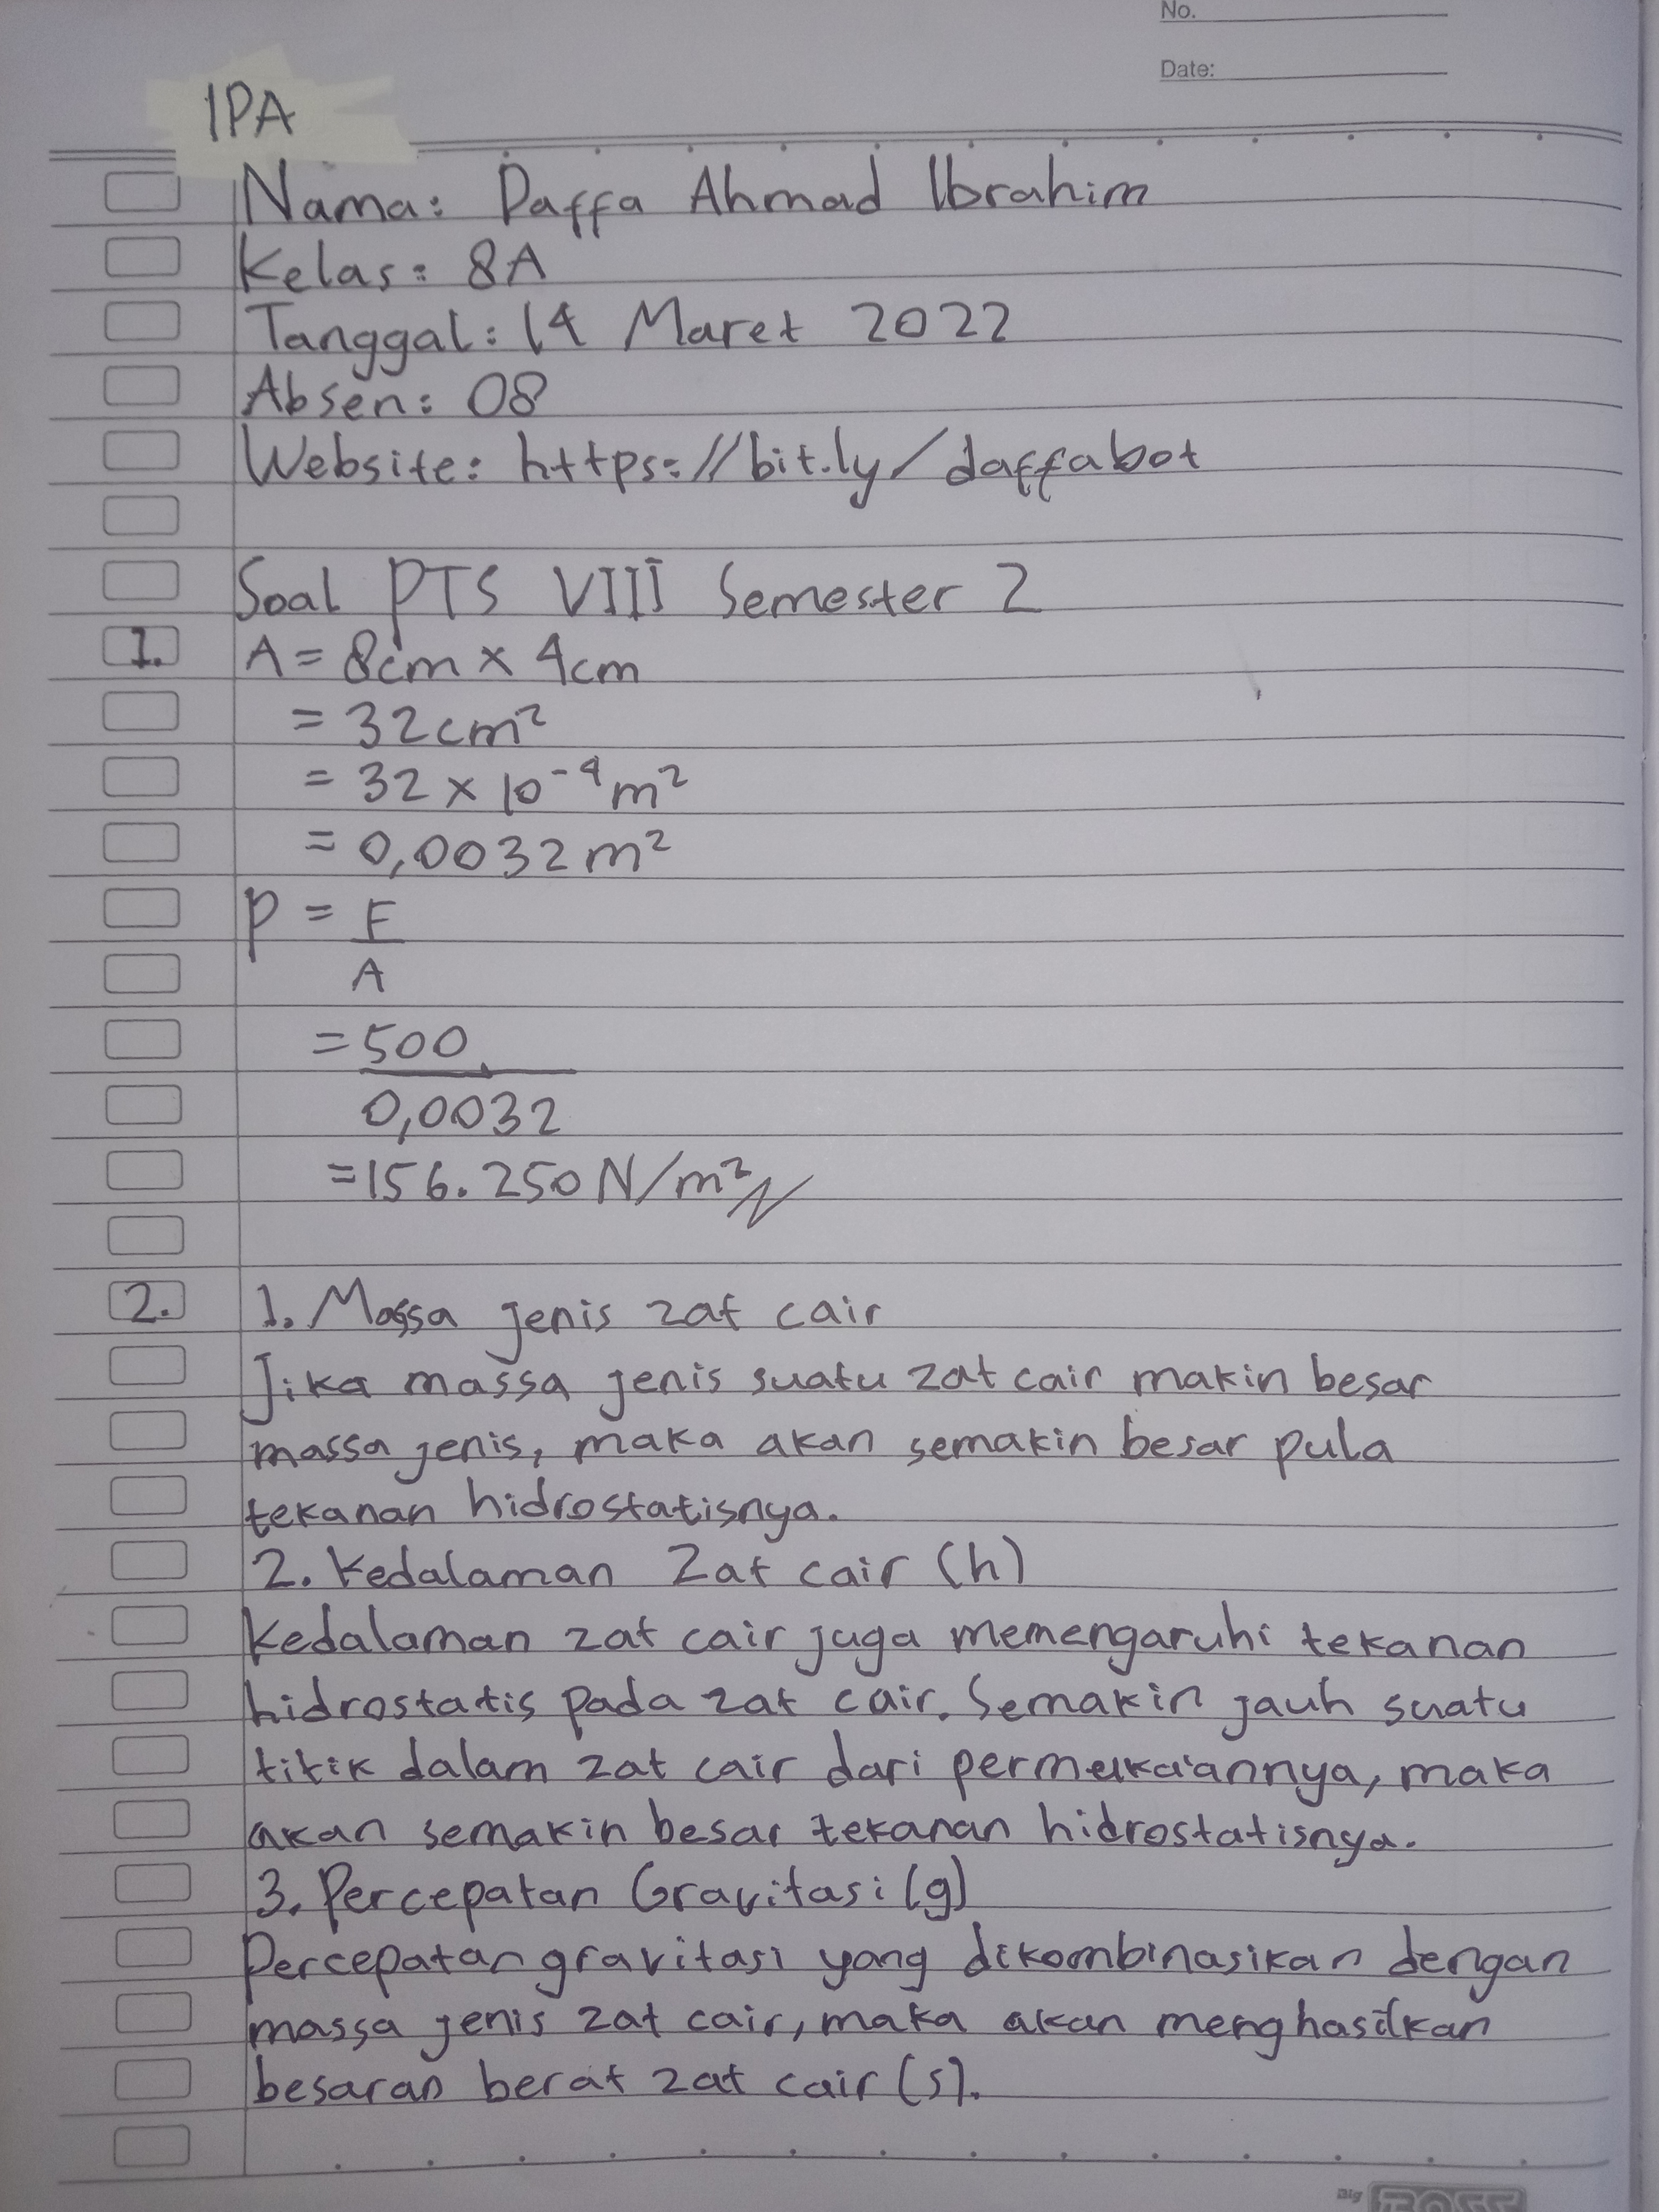 No.
Date:
IPA
Nama: Daffa Ahmad Ibrahim
Kelas: 8A
Tanggal: 14 Maret 2022
Absen: 08
Website: https://bit.ly/daffabot
Soal PTS VIII Semester 2
1. A = 8cm × 4cm
= 32cm²
= 32 × 10⁻⁴ m²
= 0,0032 m²
P = F
A
= 500
0,0032
= 156.250 N/m²
2. 1. Massa jenis zat cair
Jika massa jenis suatu zat cair makin besar
massa jenis, maka akan semakin besar pula
tekanan hidrostatisnya.
2. Kedalaman Zat cair (h)
Kedalaman zat cair juga memengaruhi tekanan
hidrostatis pada zat cair. Semakin jauh suatu
titik dalam zat cair dari permukaannya, maka
akan semakin besar tekanan hidrostatisnya.
3. Percepatan Gravitasi (g)
Percepatan gravitasi yang dikombinasikan dengan
massa jenis zat cair, maka akan menghasilkan
besaran berat zat cair (s).
Big BOSS